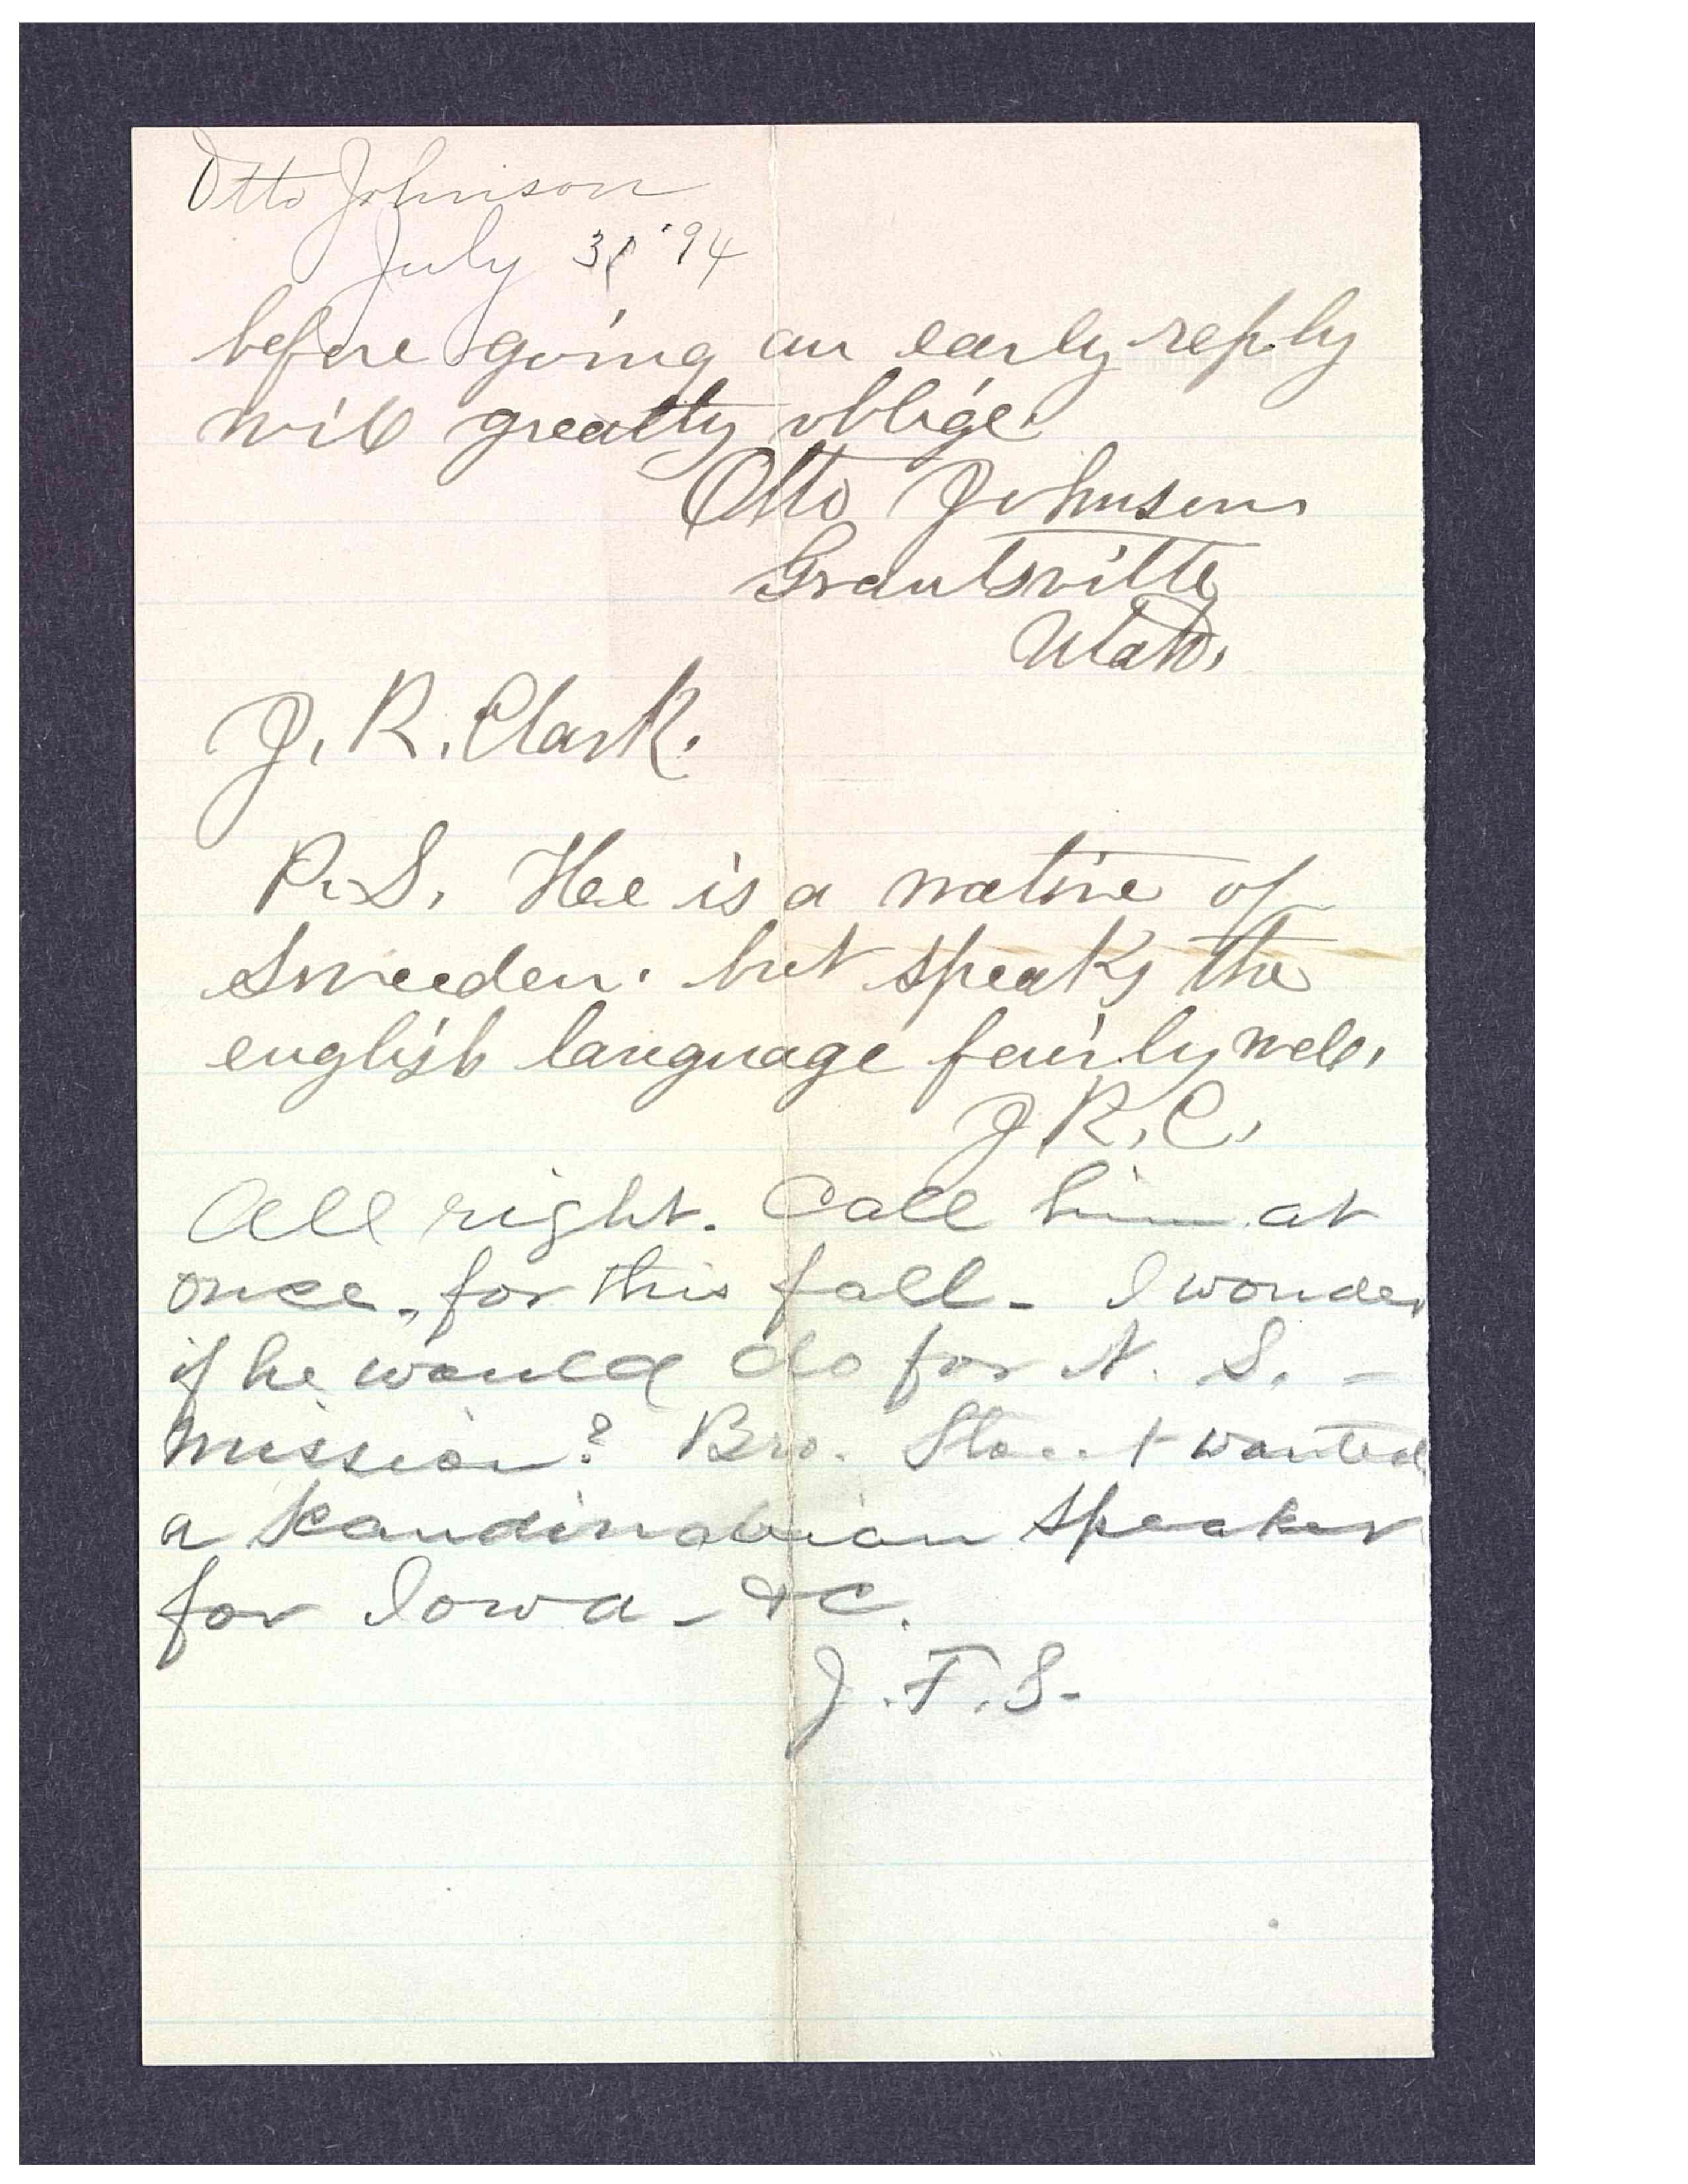 Otto Johnson
July 31 '94
before going an early reply
will greatly oblige.
Otto Johnson
Grantsville
Utah.
J. R. Clark.
P.S. Hee is a native of
Sweeden. but speaks the
english language fairly well,
J R. C.
All right. Call him at
once, for this fall - I wonder
if he would do for N. S. -
mission? Bro. wanted
a Scandinavian speaker
for Iowa - &C.
J. F. S.